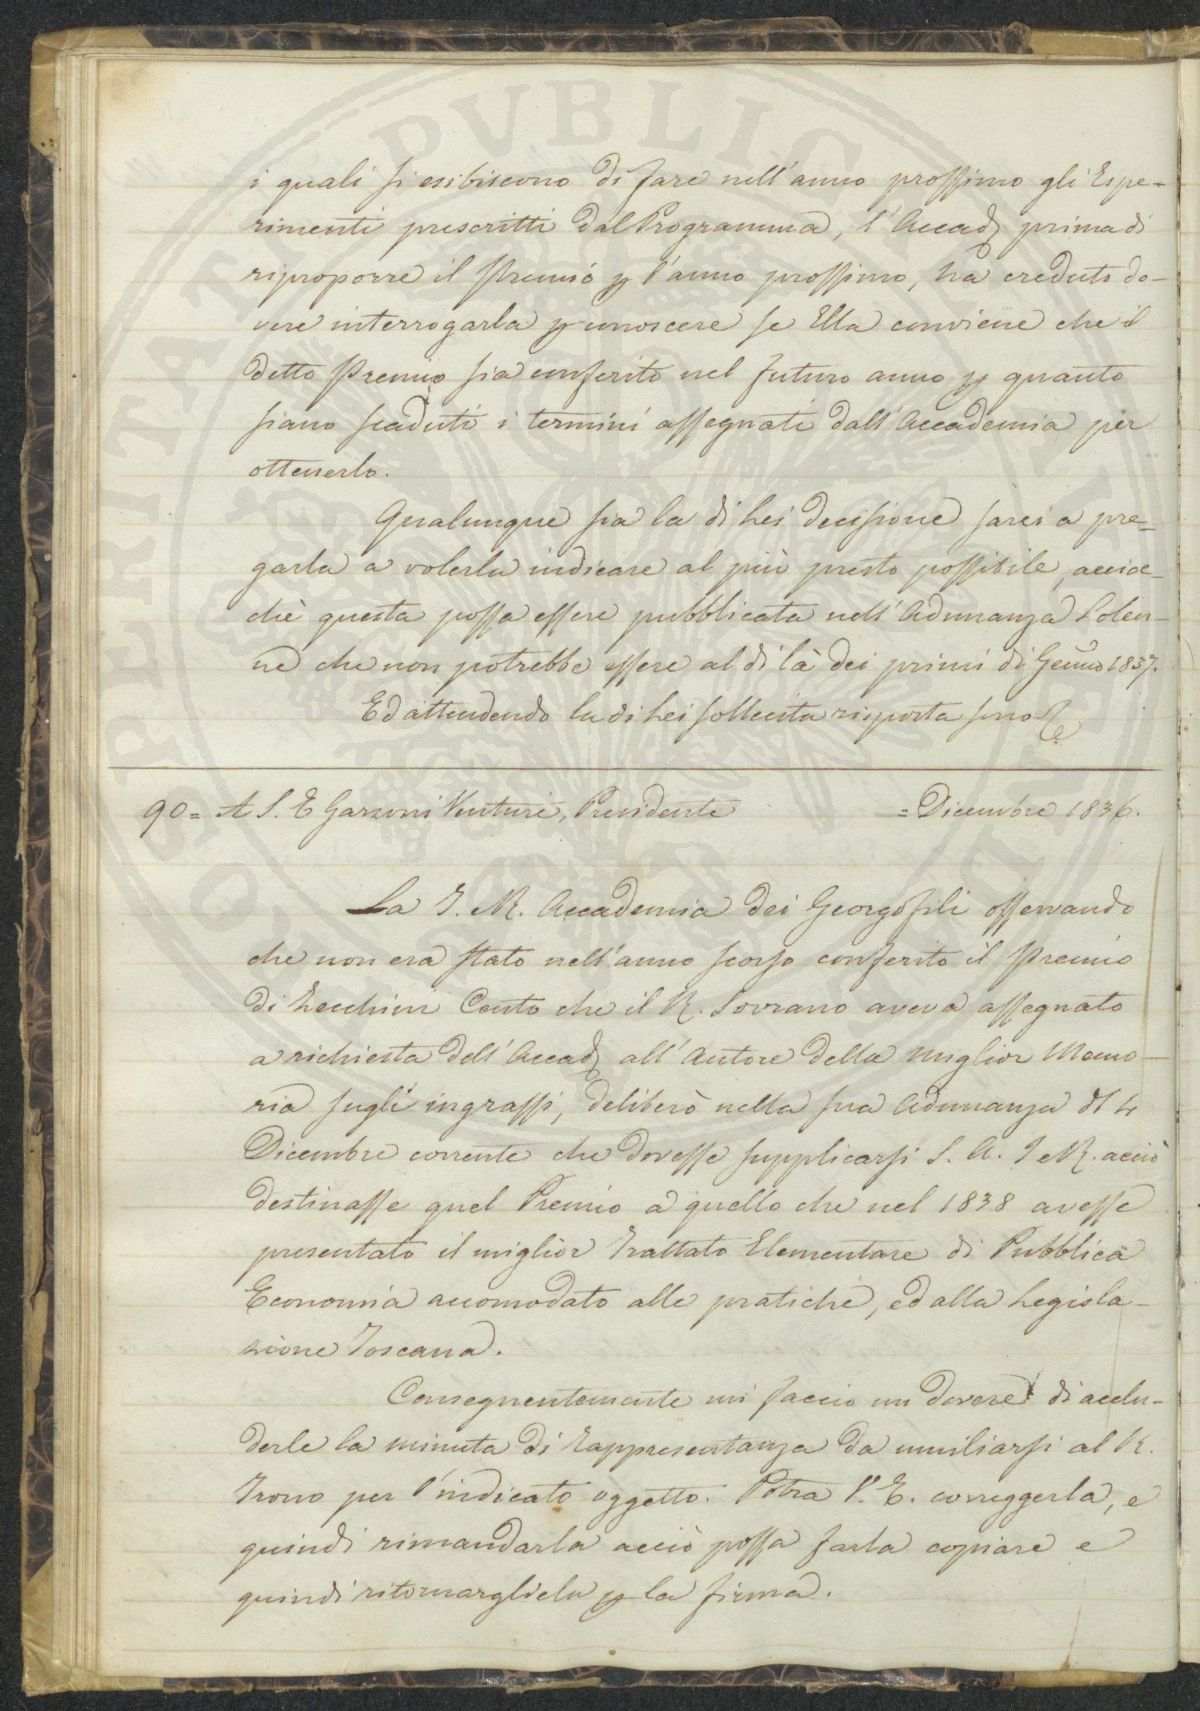 i quali si esibiscono di fare nell'anno prossimo gli Espe-
rimenti prescritti dal Programma, l'Accad. prima di
riproporre il Premio p l'anno prossimo, ha creduto do-
vere interrogarla p conoscere se Ella conviene che il
detto Premio sia conferito nel futuro anno p quanto
siano scaduti i termini assegnati dall'Accademia per
ottenerlo.
Qualunque sia la di Lei decisione sarei a pre-
garla a volerla indicare al più presto possibile, accioc-
chè questa possa essere pubblicata nell'Adunanza Solen-
ne che non potrebbe essere al di là dei primi di Genno 1837.
Ed attendendo la di Lei sollecita risposta sono
90 = A S. E Garzoni Venturi, Presidente = Dicembre 1836.
La I. e R. Accademia dei Georgofili osservando
che non era stato nell'anno scorso conferito il Premio
di Zecchini Cento che il R. Sovrano aveva assegnato
a richiesta dell'Accad. all'Autore della miglior Memo-
ria sugli ingrassi, deliberò nella sua Adunanza del 4
Dicembre corrente che dovesse supplicarsi S. A. I e R. acciò
destinasse quel Premio a quello che nel 1838 avesse
presentato il miglior Trattato Elementare di Pubblica
Economia accomodato alle pratiche, ed alla Legisla-
zione Toscana.
Conseguentemente mi faccio un dovere di acclu-
derle la minuta di rappresentanza da umiliarsi al R.
Trono per l'indicato oggetto. Potrà V. E. correggerla, e
quindi rimandarla acciò possa farla copiare e
quindi ritornargliela p la firma.
PROSPERITATI PUBLICAE